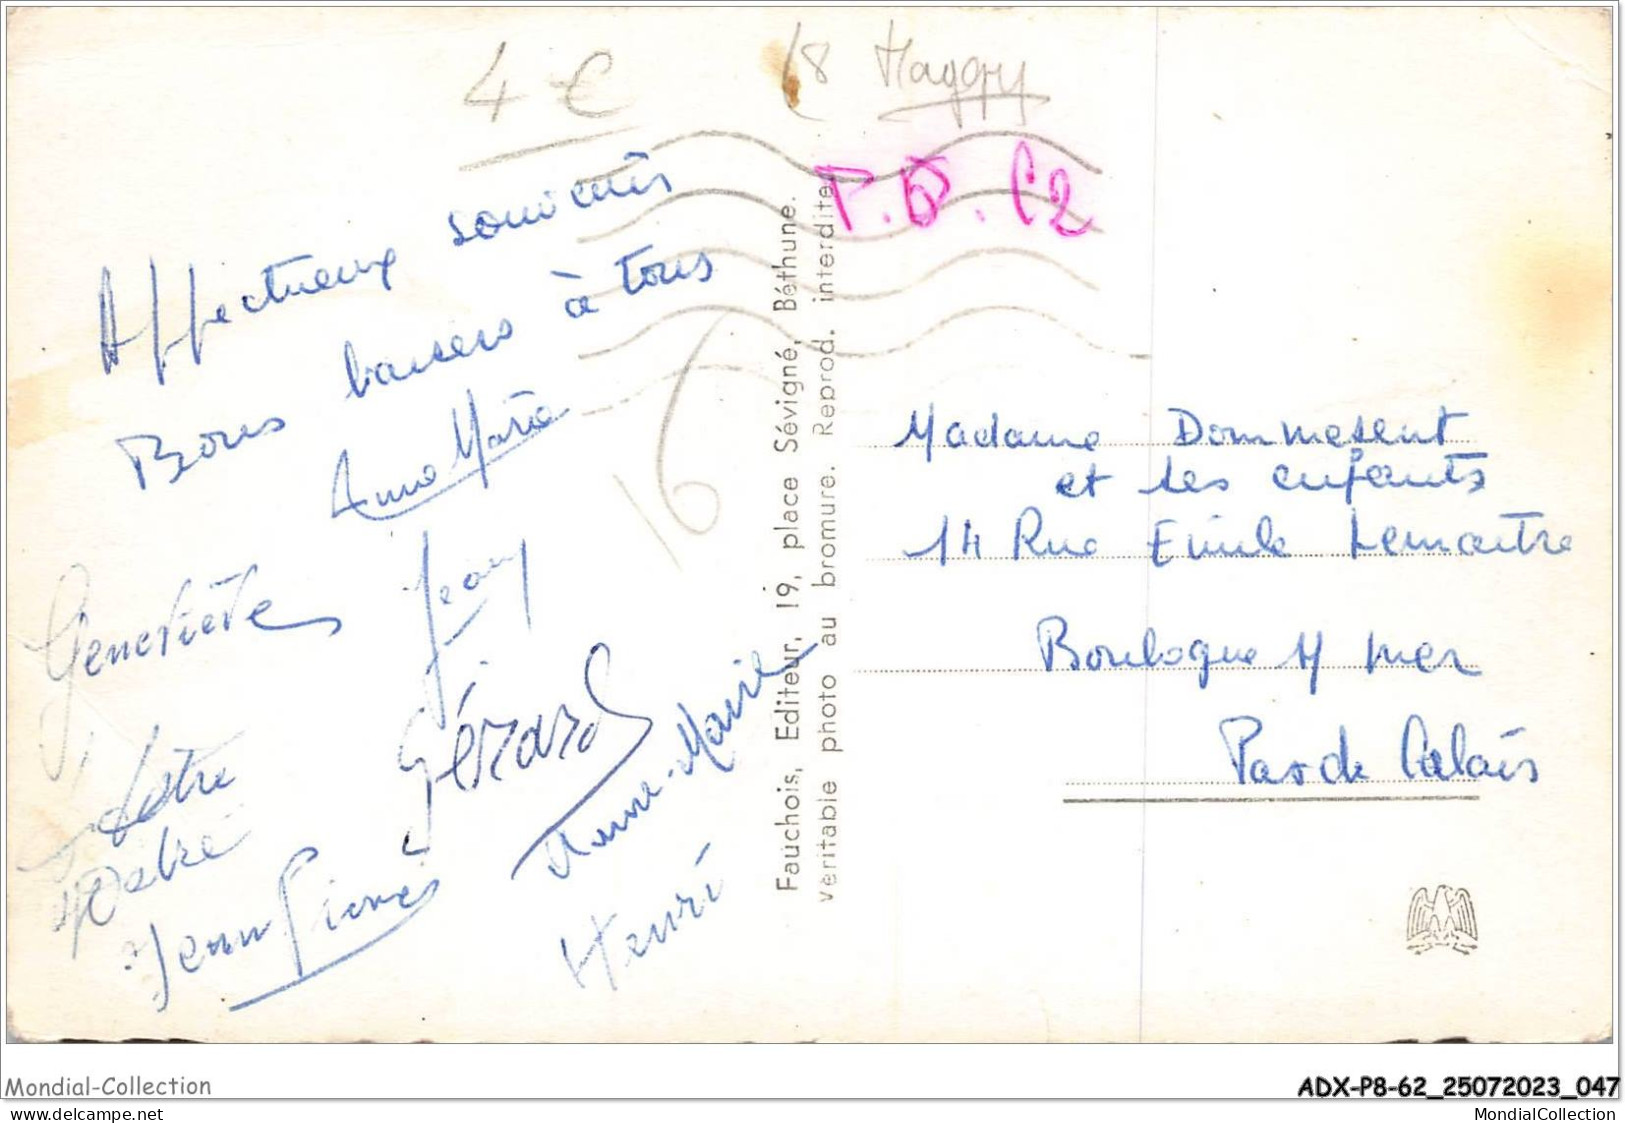 4 €
18 Maggy
P.D. C2
Affectueux souvenirs
Bons baisers à tous
Anne Marie
16
Jean
Geneviève
Gérard
Anne-Marie
Jean Pierre
Henri
Fauchois, Editeur, 19, place Sévigné, Béthune.
Véritable photo au bromure. Reprod. interdite.
Madame Dommesent
et ses enfants
14 Rue Emile Lemaitre
Boulogne s/ mer
Pas de Calais
Mondial-Collection
ADX-P8-62_25072023_047
www.delcampe.net
MondialCollection